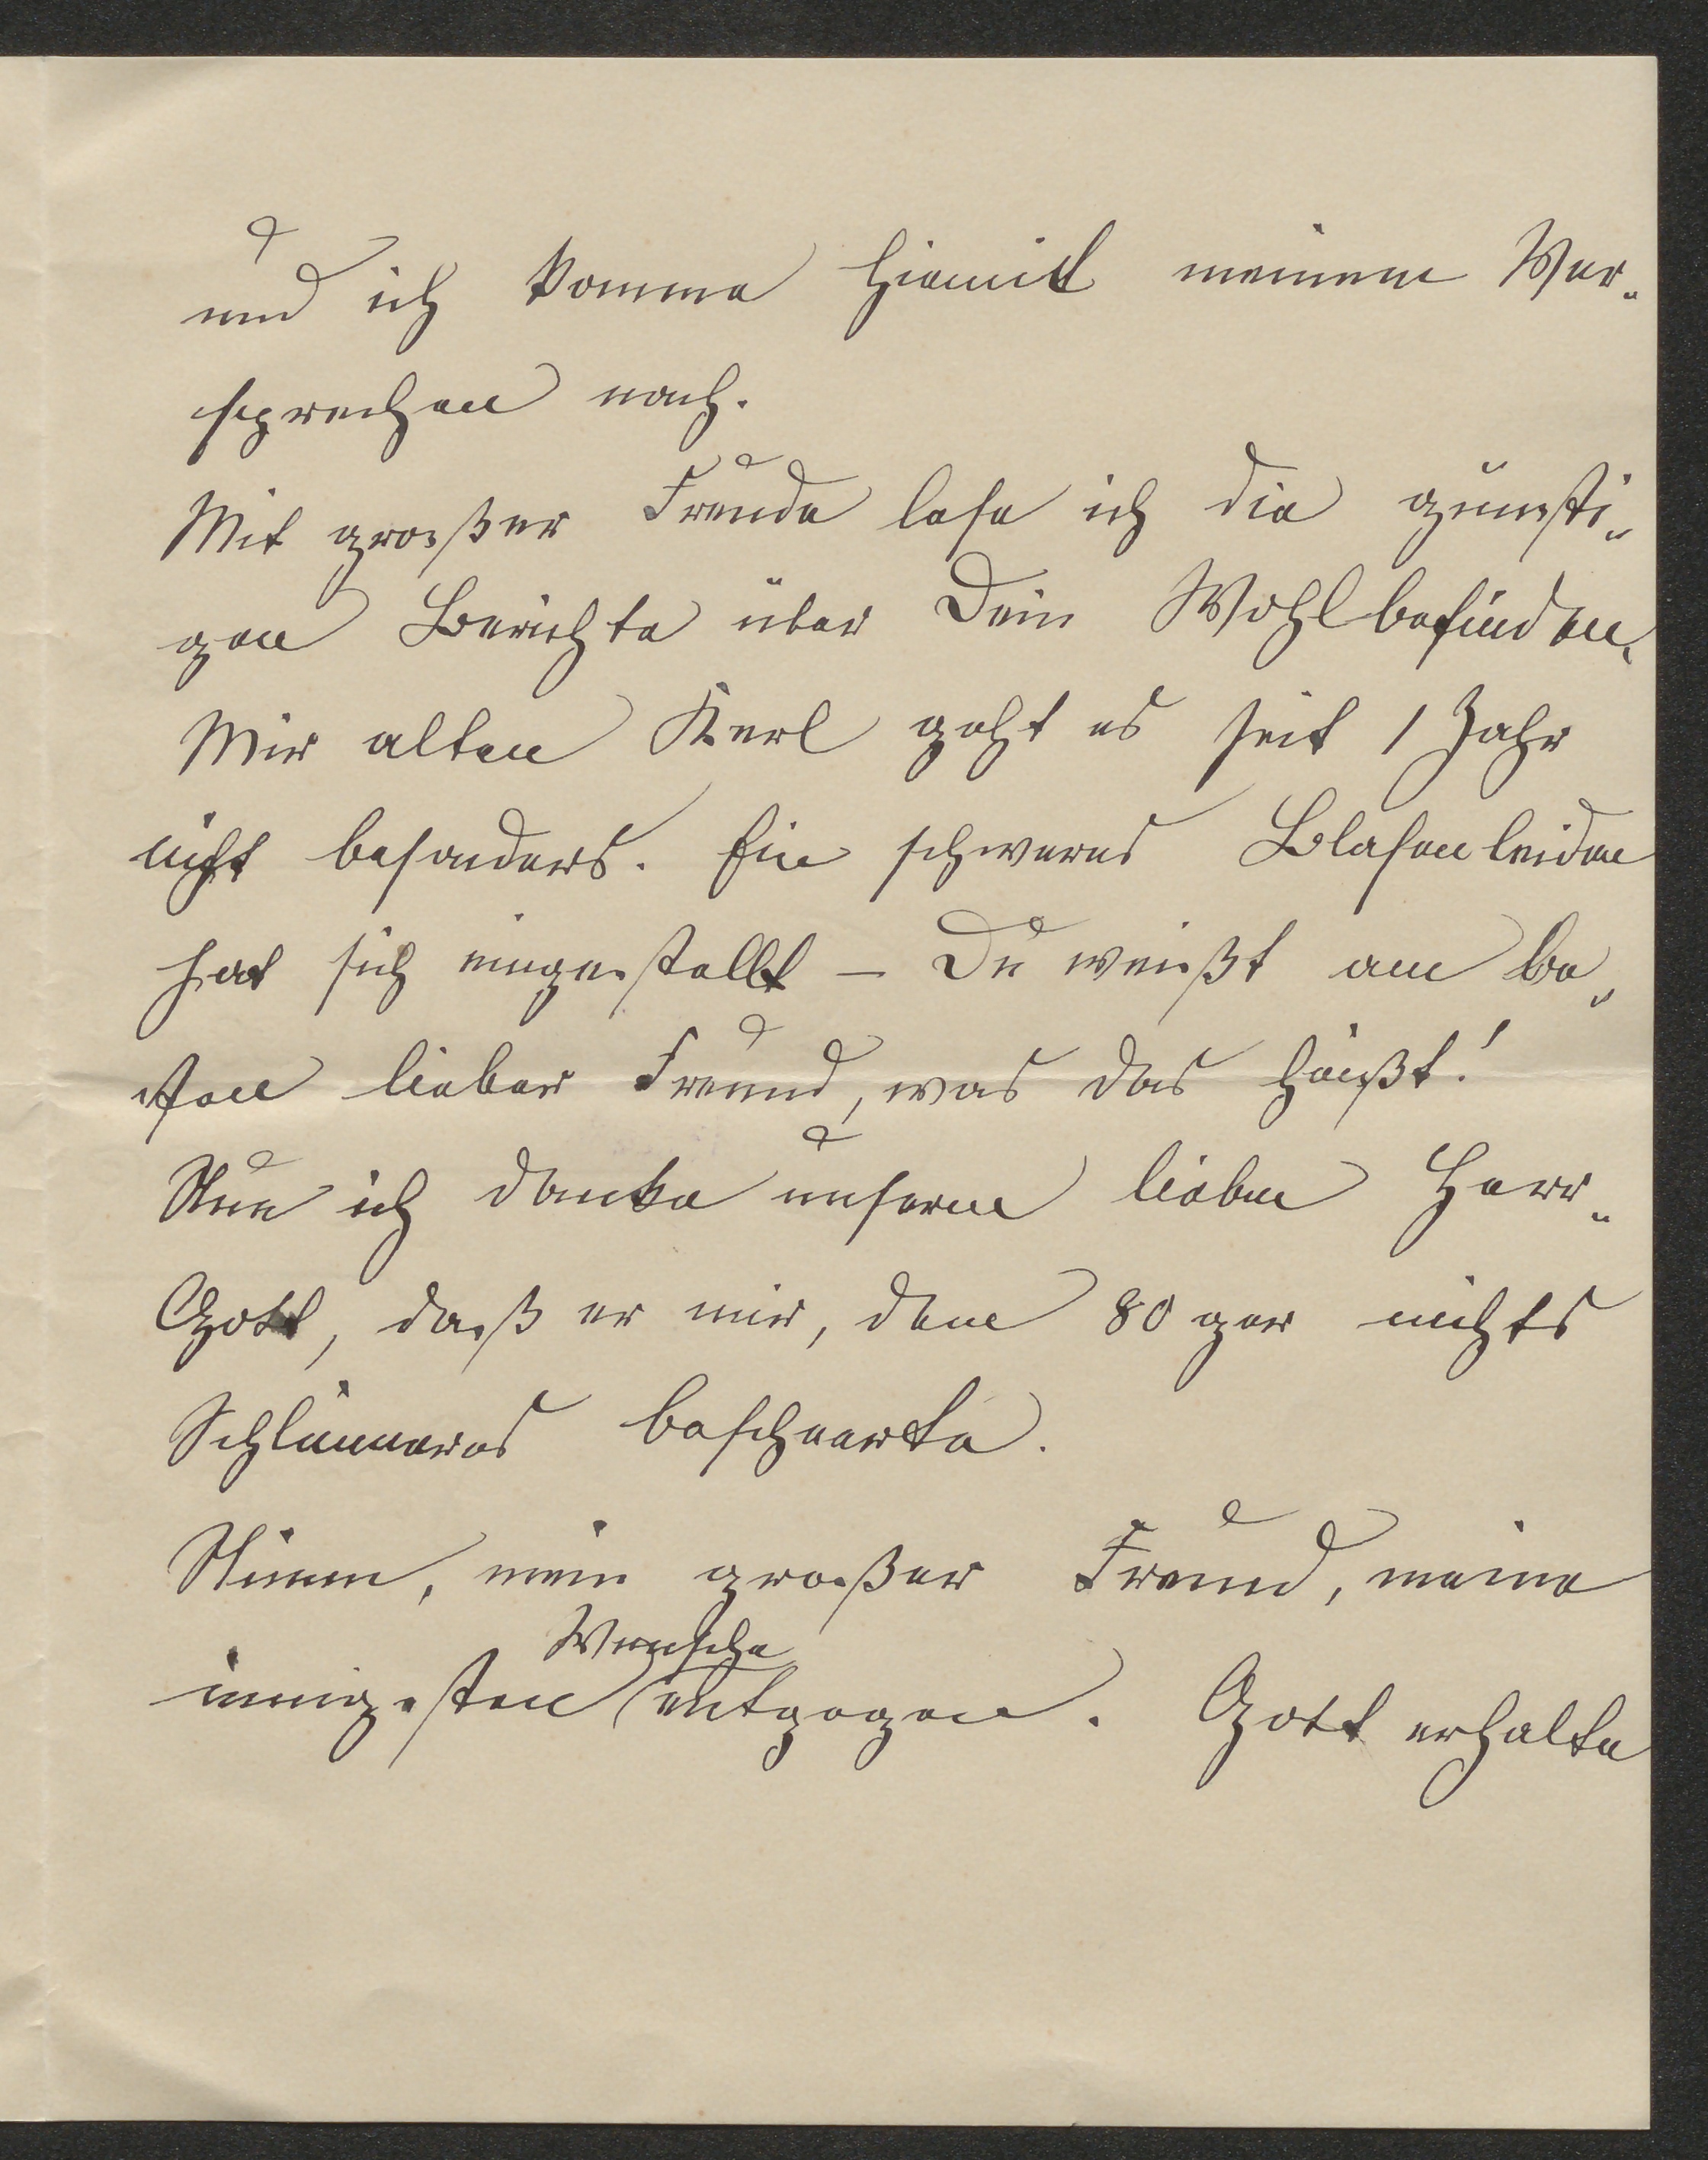 und ich komme hiemit meinem Ver-
sprechen nach.
Mit großer Freude lese ich die günsti-
gen Berichte über Dein Wohlbefinden.
Mir alten Kerl geht es seit 1 Jahr
nicht besonders. Ein schweres Blasenleiden
hat sich eingestellt – Du weißt am be-
sten lieber Freund, was das heißt!
Nun ich danke unserm lieben Herr-
Gott, daß er mir, dem 80ger nichts
Schlimmeres bescheerte.
Nimm, mein großer Freund, meine
Wünsche
innigsten entgegen. Gott erhalte